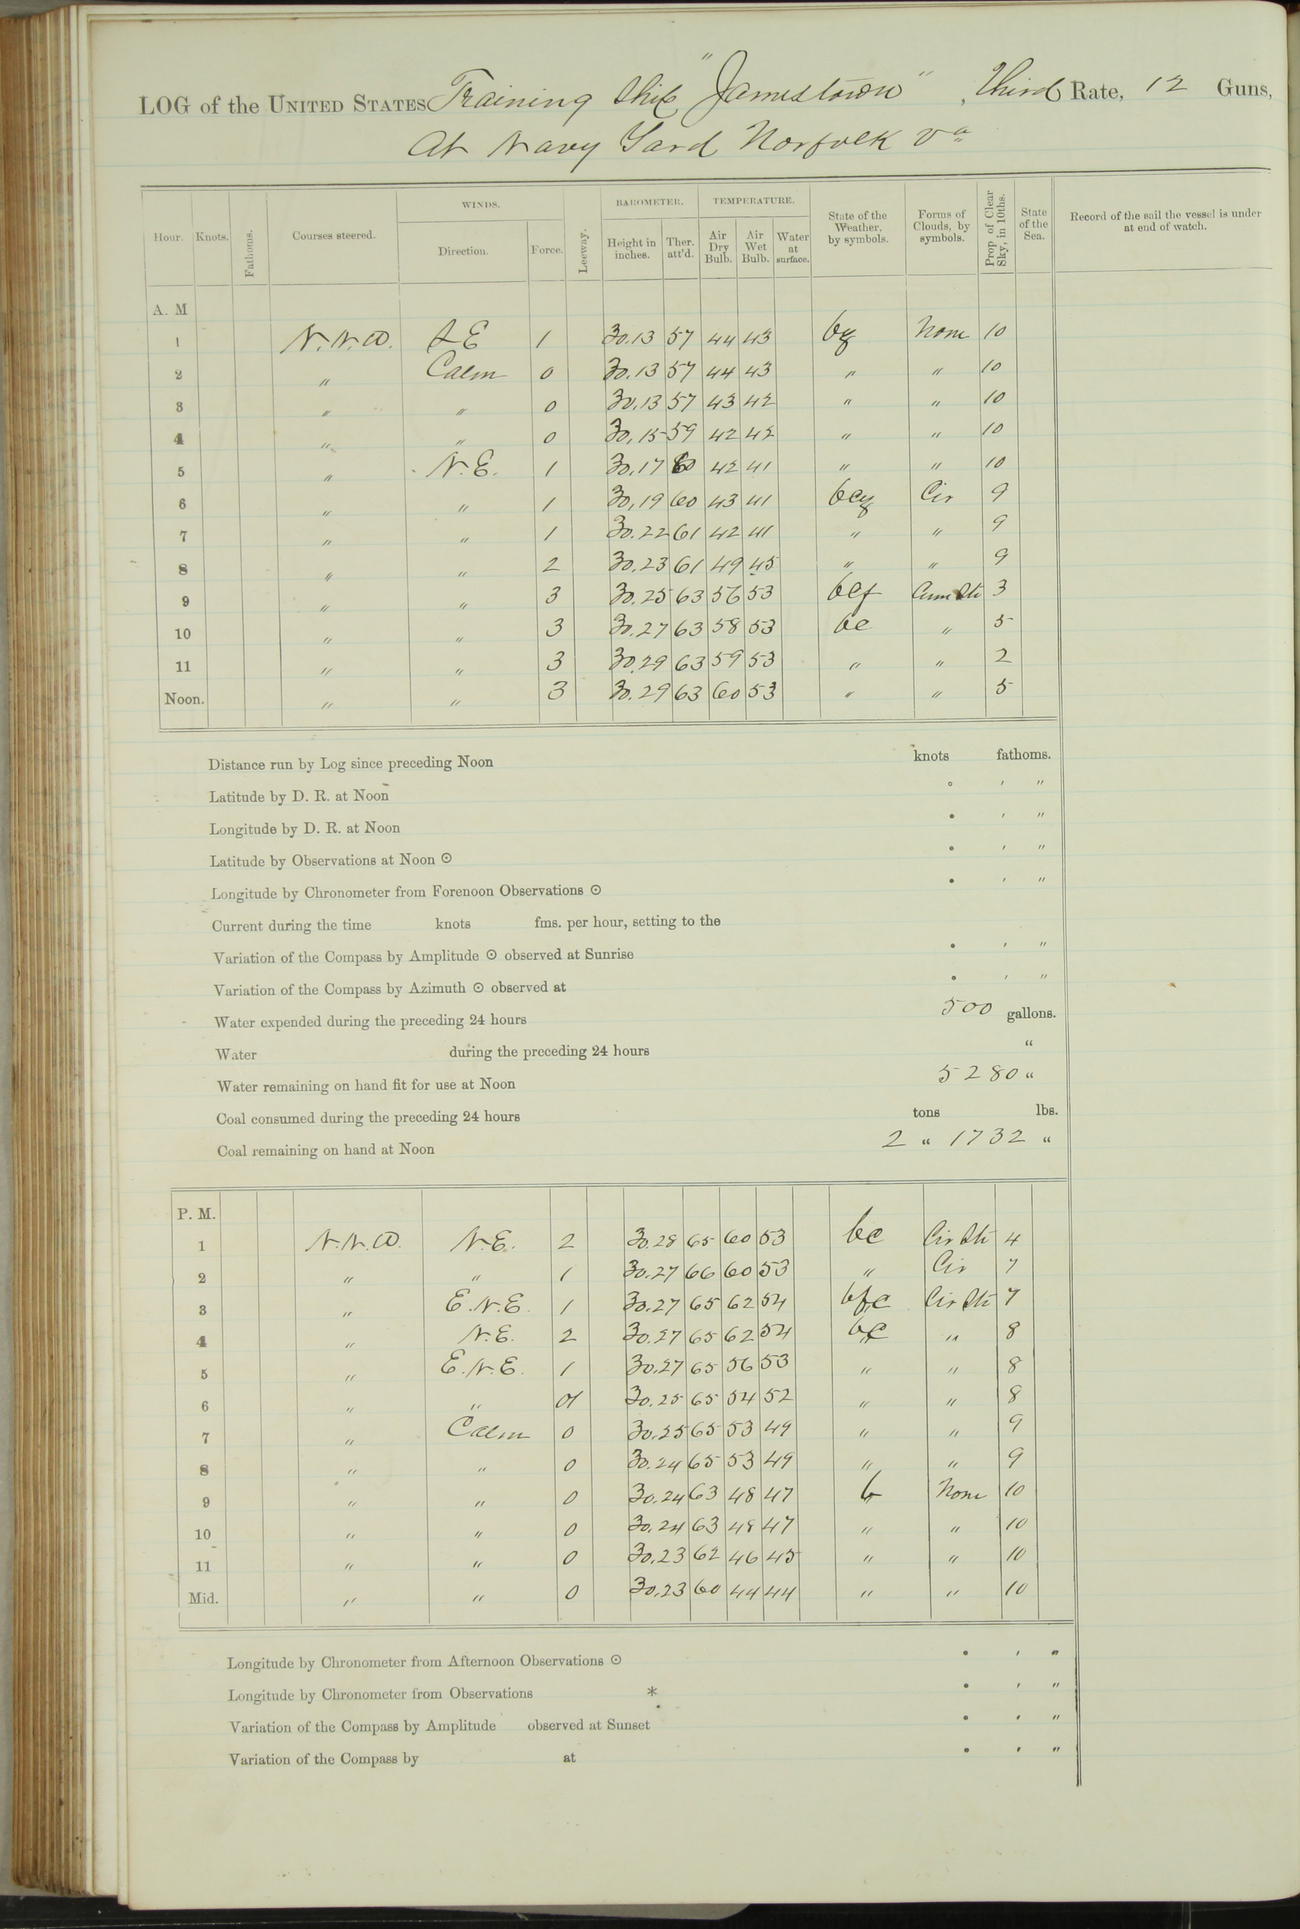 LOG of the UNITED STATES Training Ship "Jamestown", Third Rate, 12 Guns,
At Navy Yard Norfolk Va
Hour. Knots. Fathoms. Courses steered. WINDS. Direction. Force. Leeway. BAROMETER. Height in inches. Ther. att'd. TEMPERATURE. Air Dry Bulb. Air Wet Bulb. Water at surface. State of the Weather, by symbols. Forms of Clouds, by symbols. Prop of Clear Sky, in 10ths. State of the Sea. Record of the sail the vessel is under at end of watch.
A. M
1 N.N.W. S E 1 30.13 57 44 43 None 10
2 " Calm 0 30.13 57 44 43 " " 10
3 " " 0 30.13 57 43 42 " " 10
4 " " 0 30.15 59 42 42 " " 10
5 " N.E. 1 30.17 60 42 41 " " 10
6 " " 1 30.19 60 43 41 Cir 9
7 " " 1 30.22 61 42 41 " " 9
8 " " 2 30.23 61 49 45 " " 9
9 " " 3 30.25 63 56 53 bcf Cum Sti 3
10 " " 3 30.27 63 58 53 bc " 5
11 " " 3 30.29 63 59 53 " " 2
Noon. " " 3 30.29 63 60 53 " " 5
Distance run by Log since preceding Noon knots fathoms.
Latitude by D. R. at Noon ° ' "
Longitude by D. R. at Noon ° ' "
Latitude by Observations at Noon ⊙ ° ' "
Longitude by Chronometer from Forenoon Observations ⊙ ° ' "
Current during the time knots fms. per hour, setting to the
Variation of the Compass by Amplitude ⊙ observed at Sunrise ° ' "
Variation of the Compass by Azimuth ⊙ observed at ° ' "
Water expended during the preceding 24 hours 500 gallons.
Water during the preceding 24 hours "
Water remaining on hand fit for use at Noon 5280 "
Coal consumed during the preceding 24 hours tons lbs.
Coal remaining on hand at Noon 2 " 1732 "
P. M.
1 N.N.W. N.E. 2 30.28 65 60 53 bc Cir Sti 4
2 " " 1 30.27 66 60 53 " Cir 7
3 " E.N.E. 1 30.27 65 62 54 Cir Sti 7
4 " N.E. 2 30.27 65 62 54 bc " 8
5 " E.N.E. 1 30.27 65 56 53 " " 8
6 " " 30.25 65 54 52 " " 8
7 " Calm 0 30.25 65 53 49 " " 9
8 " " 0 30.24 65 53 49 " " 9
9 " " 0 30.24 63 48 47 b None 10
10 " " 0 30.24 63 48 47 " " 10
11 " " 0 30.23 62 46 45 " " 10
Mid. " " 0 30.23 60 44 44 " " 10
Longitude by Chronometer from Afternoon Observations ⊙ ° ' "
Longitude by Chronometer from Observations * ° ' "
Variation of the Compass by Amplitude observed at Sunset ° ' "
Variation of the Compass by at ° ' "